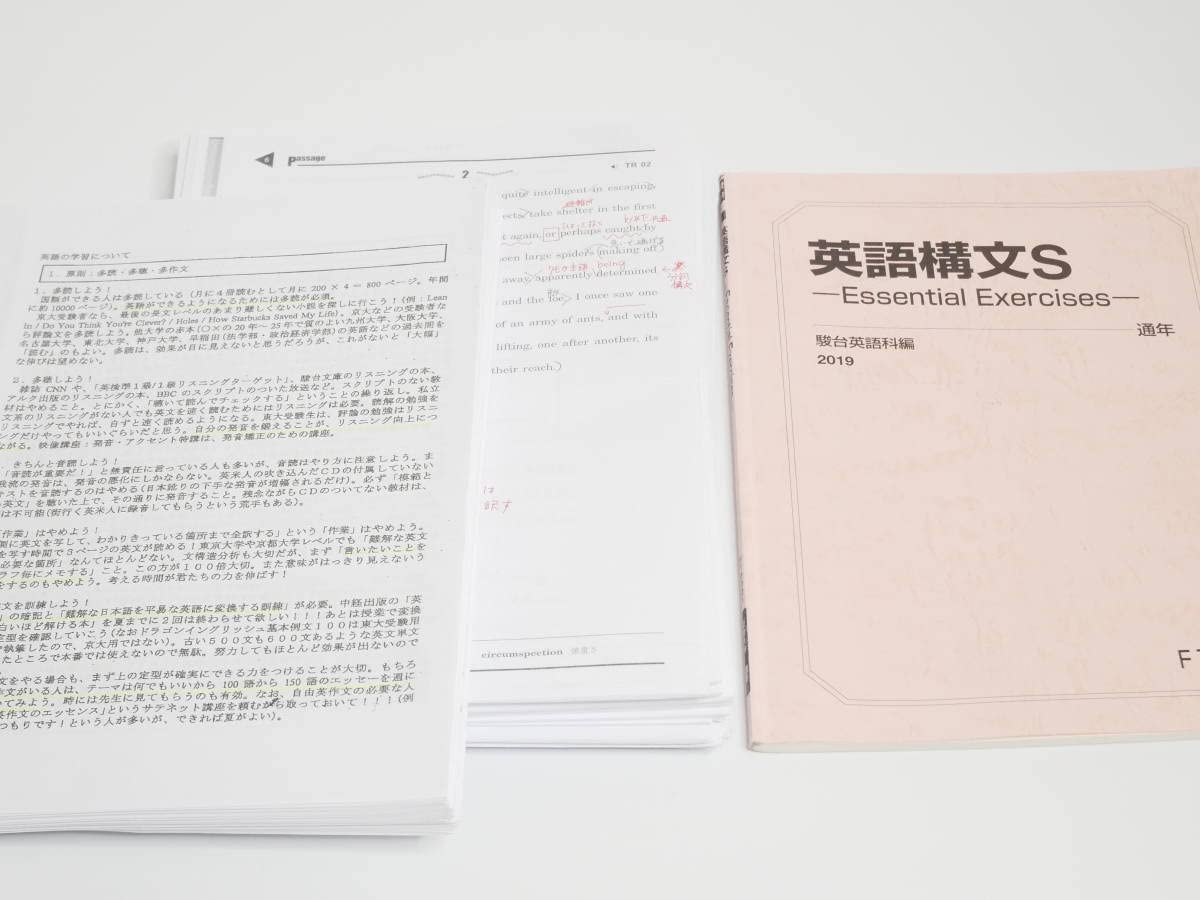 英語の学習について
1．原則：多読・多聴・多作文
1．多読しよう！
国語ができる人は多読している（月に4冊読むとして月に 200 × 4 = 800 ページ。年間
に約 10000 ページ）。英語ができるようになるためには多読が必須。
東大受験者なら、最後の長文レベルのあまり難しくない小説を探しに行こう！（例：Lean
In / Do You Think You're Clever? / Holes / How Starbucks Saved My Life）。京大などの受験者な
ら評論文を多読しよう。他大学の赤本（○×の20年～25年で質のよい九州大学、大阪大学、
名古屋大学、東北大学、神戸大学、早稲田（法学部・政治経済学部）の英語などの過去問を
「読む」のもよい。多読は、効果が目に見えないと思うだろうが、これがないと「大幅」
な伸びは望めない。
2．多聴しよう！
雑誌 CNN や、「英検準1級/1級リスニングターゲット」、駿台文庫のリスニングの本、
アルク出版のリスニングの本、BBC のスクリプトのついた放送など。スクリプトのない教
材はやめること。とにかく、「聴いて読んでチェックする」ということの繰り返し。私立
文系のリスニングがない人でも英文を速く読むためにはリスニングは必要。読解の勉強を
リスニングでやれば、自ずと速く読めるようになる。東大受験生は、評論の勉強はリスニ
ングだけやってもいいぐらいだと思う。自分の発音を鍛えることが、リスニング向上につ
ながる。映像講座：発音・アクセント特講は、発音矯正のための講座。
きちんと音読しよう！
「音読が重要だ！」と無責任に言っている人も多いが、音読はやり方に注意しよう。ま
我流の発音は、発音の悪化にしかならない。英米人の吹き込んだＣＤの付属していない
テキストを音読するのはやめる（日本訛りの下手な発音が増幅されるだけ）。必ず「模範と
英文」を聴いた上で、その通りに発音すること。残念ながらＣＤのついてない教材は、
は不可能（街行く英米人に録音してもらうという荒手もある）。
「作業」はやめよう！
側に英文を写して、わかりきっている箇所まで全訳する」という「作業」はやめよう。
を写す時間で3ページの英文が読める！東京大学や京都大学レベルでも「難解な英文
必要な箇所」なんてほとんどない。文構造分析も大切だが、まず「言いたいことを
ラフ毎にメモする」こと。この方が100倍大切。また意味がはっきり見えないう
をするのもやめよう。考える時間が君たちの力を伸ばす！
文を訓練しよう！
」の暗記と「難解な日本語を平易な英語に変換する訓練」が必要。中経出版の「英
白いほど解ける本」を夏までに2回は終わらせて欲しい！！！あとは授業で変換
定型を確認していこう（なおドラゴンイングリッシュ基本例文100は東大受験用
執筆したので、京大用ではない）。古い500文も600文あるような英文単文
たところで本番では使えないので無駄。努力してもほとんど効果が出ないので
文をやる場合も、まず上の定型が確実にできる力をつけることが大切。もちろ
作文がいる人は、テーマは何でもいいから 100 語から 150 語のエッセーを週に
いてみよう。時には先生に見てもらうのも有効。なお、自由英作文の必要な人
英作文のエッセンス」というサテネット講座を頼むから取っておいて！！！（例
つもりです！という人が多いが、できれば夏がよい）。
6 Passage
2
TR 02
quite intelligent in escaping,
ects, take shelter in the first
t again, or perhaps caught by
een large spiders making off
being
away, apparently determined
and the foe. I once saw one
of an army of ants, and with
lifting, one after another, its
their reach.
は
訳す
circumspection 慎重さ
英語構文S
―Essential Exercises―
通年
駿台英語科編
2019
F